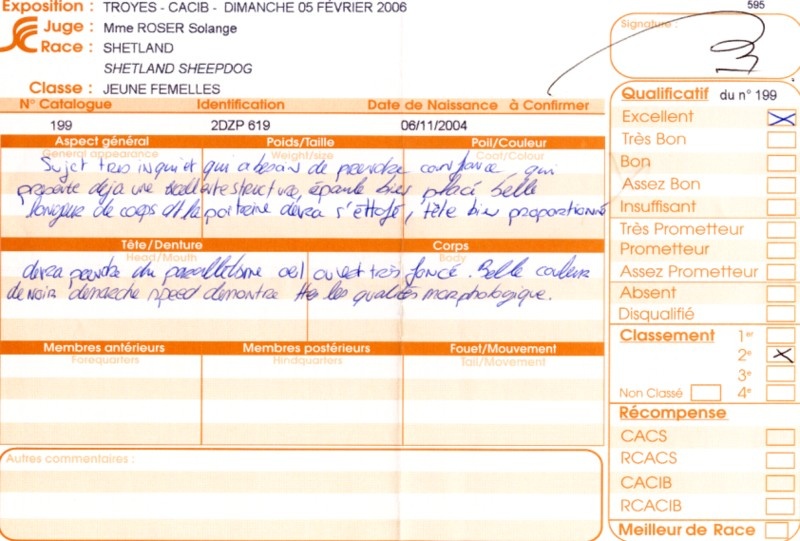 Exposition : TROYES - CACIB - DIMANCHE 05 FÉVRIER 2006
595
Juge : Mme ROSER Solange
Race : SHETLAND
SHETLAND SHEEPDOG
Classe : JEUNE FEMELLES
Signature :
N° Catalogue Identification Date de Naissance à Confirmer
199 2DZP 619 06/11/2004
Aspect général Poids/Taille Poil/Couleur
General appearance Weight/size Coat/Colour
Sujet très inquiet qui a besoin de prendre confiance, qui
présente déjà une structure, épaule bien placé belle
longueur de corps et la poitrine devra s'étoffé, tête bien proportionné
Tête/Denture Corps
Head/Mouth Body
devra prendre du parallélisme oeil ouvert très foncé. Belle couleur
de noir démarche démontre les qualités morphologique.
Membres antérieurs Membres postérieurs Fouet/Mouvement
Forequarters Hindquarters Tail/Movement
Autres commentaires :
Qualificatif du n° 199
Excellent
Très Bon
Bon
Assez Bon
Insuffisant
Très Prometteur
Prometteur
Assez Prometteur
Absent
Disqualifié
Classement 1er
2e
3e
Non Classé 4e
Récompense
CACS
RCACS
CACIB
RCACIB
Meilleur de Race